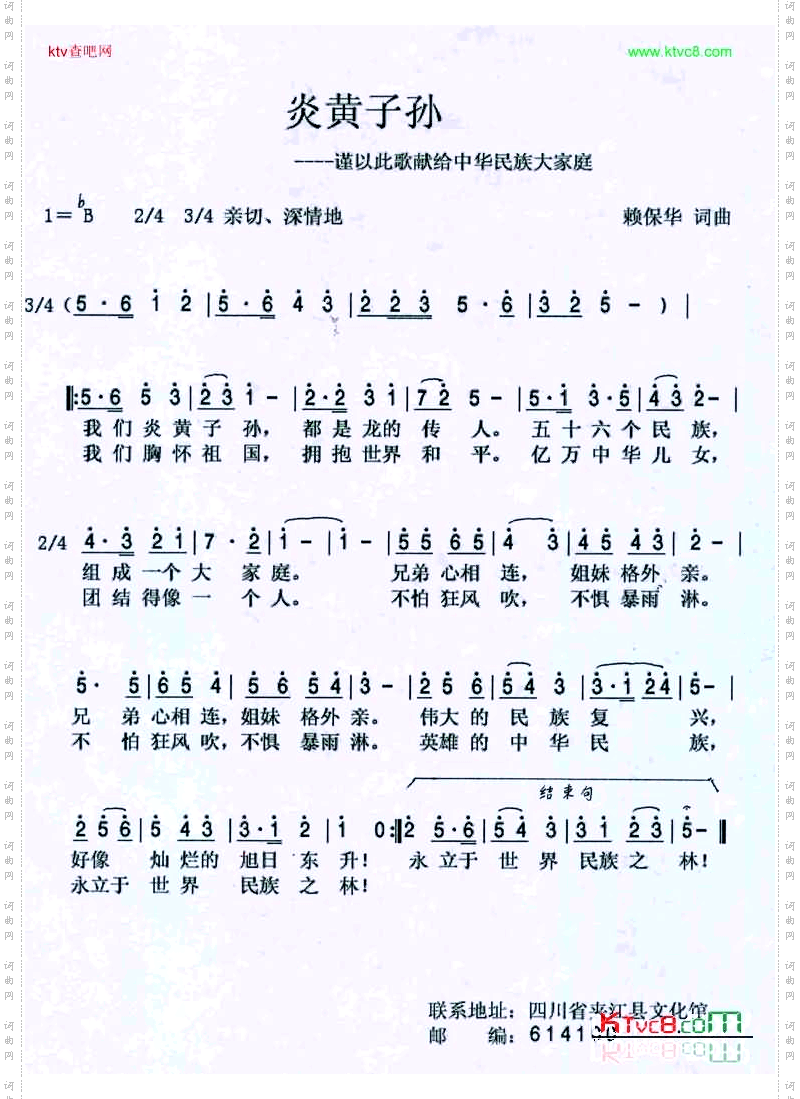 ktv查吧网 www.ktvc8.com
炎黄子孙
----谨以此歌献给中华民族大家庭
1=ᵇB 2/4 3/4 亲切、深情地 赖保华 词曲
3/4（5·6 1 2|5·6 4 3|2 2 3 5·6|3 2 5 - ）|
‖:5·6 5 3|2 3 1 -|2·2 3 1|7 2 5 -|5·1 3·5|4 3 2-|
我们炎黄子 孙， 都是龙的 传 人。五十六个民 族，
我们胸怀祖 国，拥抱世界 和 平。亿万中华儿 女，
2/4 4·3 2 1|7·2|1 -|1 -|5 5 6 5|4 3|4 5 4 3|2 -|
组成一个大 家庭。 兄弟心相 连， 姐妹格外 亲。
团结得像一 个人。 不怕狂风 吹， 不惧暴雨 淋。
5· 5|6 5 4|5 6 5 4|3 -|2 5 6|5 4 3|3·1 2 4|5-|
兄 弟心相连，姐妹 格外亲。 伟大的 民 族 复 兴，
不 怕狂风吹，不惧 暴雨淋。 英雄的 中 华 民 族，
结束句
2 5 6|5 4 3|3·1 2|1 0:‖2 5·6|5 4 3|3 1 2 3|5-‖
好像 灿烂的 旭日 东 升！ 永 立于 世 界 民族 之 林！
永立于 世 界 民族 之 林！
联系地址：四川省夹江县文化馆
邮 编：6141
KTvc8.com
词曲网